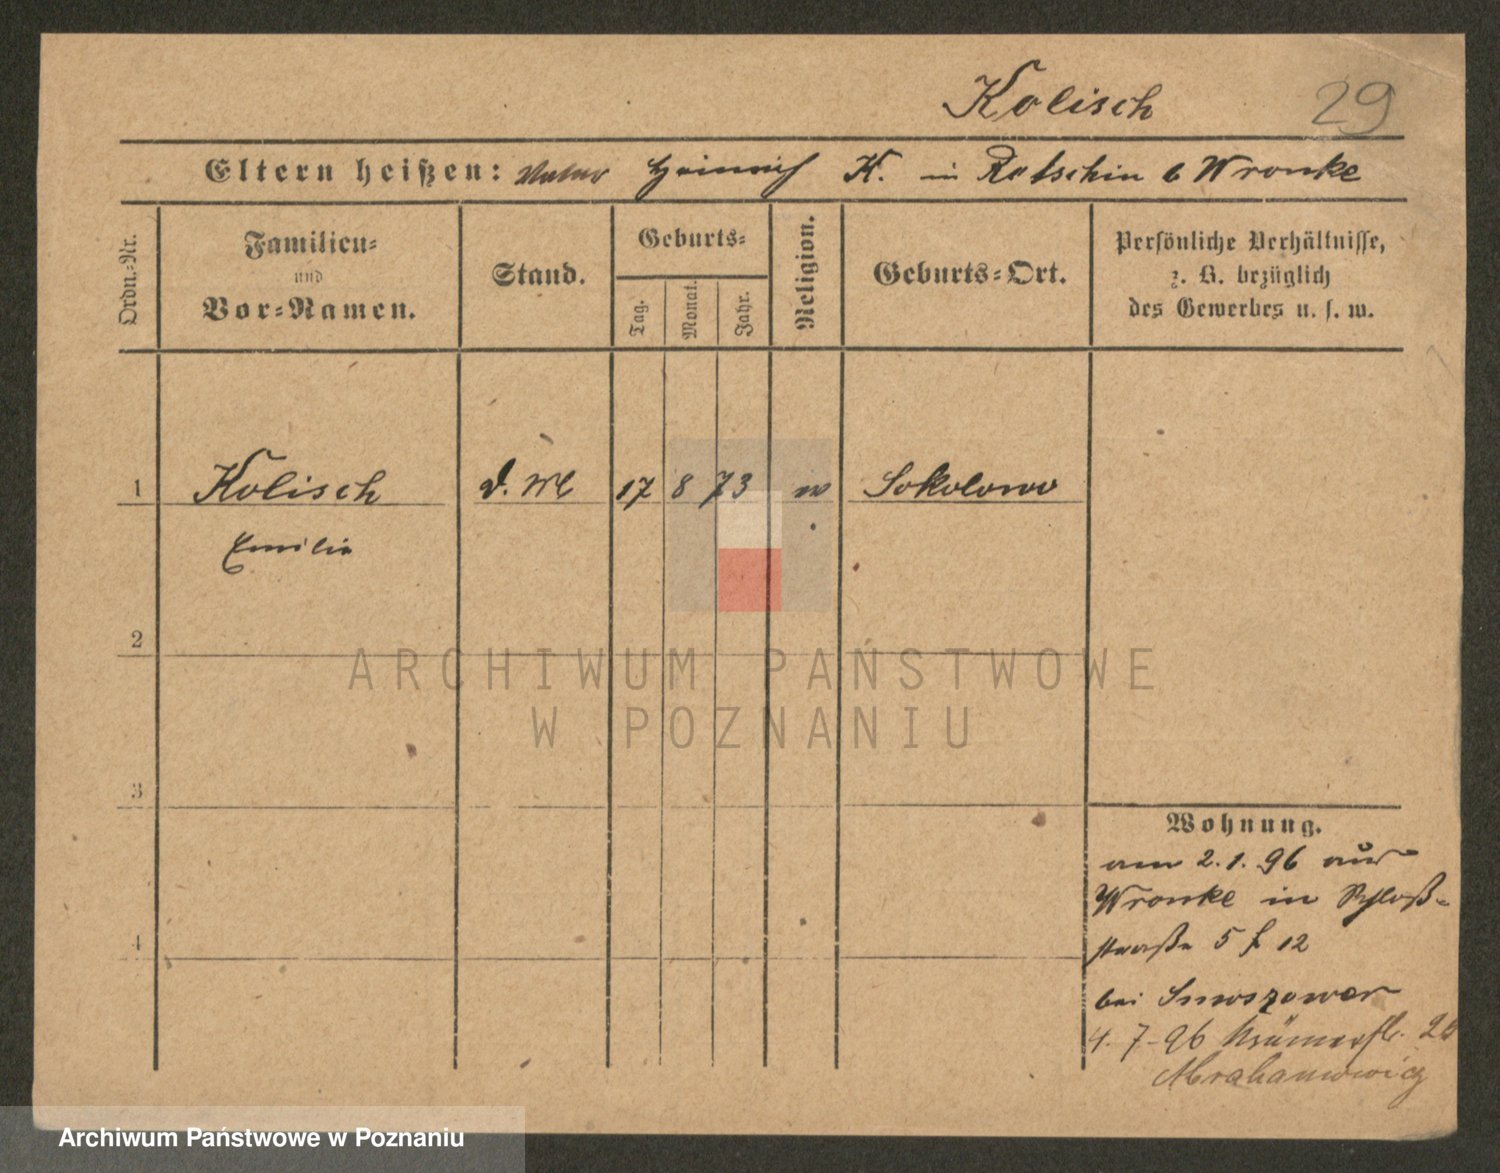 Kolisch 29
Eltern heißen: Vater Heinrich K. in Retschin b Wronke
Ordn.-Nr.
Familien-
und
Vor-Namen.
Stand.
Geburts-
Tag.
Monat.
Jahr.
Religion.
Geburts-Ort.
Persönliche Verhältnisse,
z. B. bezüglich
des Gewerbes u. s. w.
1 Kolisch d. 17 8 73 Sokolowo
Emilie
2
3
4
Wohnung.
am 2.1.96 aus
Wronke in Schloß-
straße 5 f 12
bei
4.7.96 Krämerstr.
Abrahamowicz
ARCHIWUM PAŃSTWOWE
W POZNANIU
Archiwum Państwowe w Poznaniu